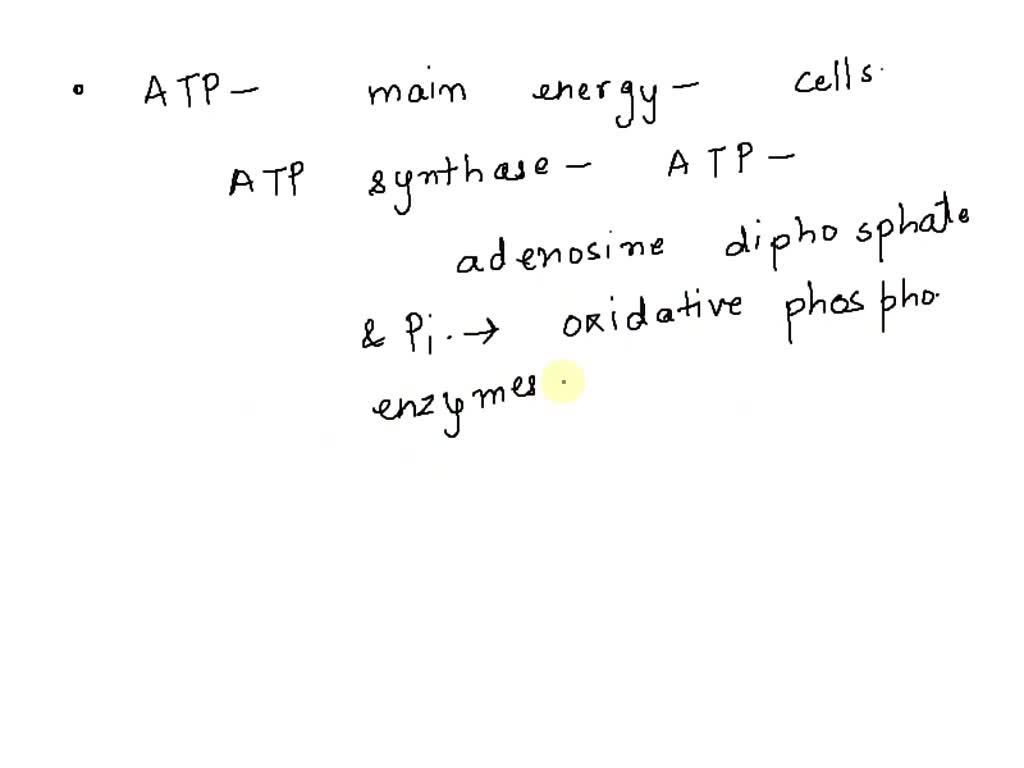 • ATP - main energy - cells.
ATP synthase - ATP -
adenosine diphosphate
& Pi. → oxidative phospho.
enzymes